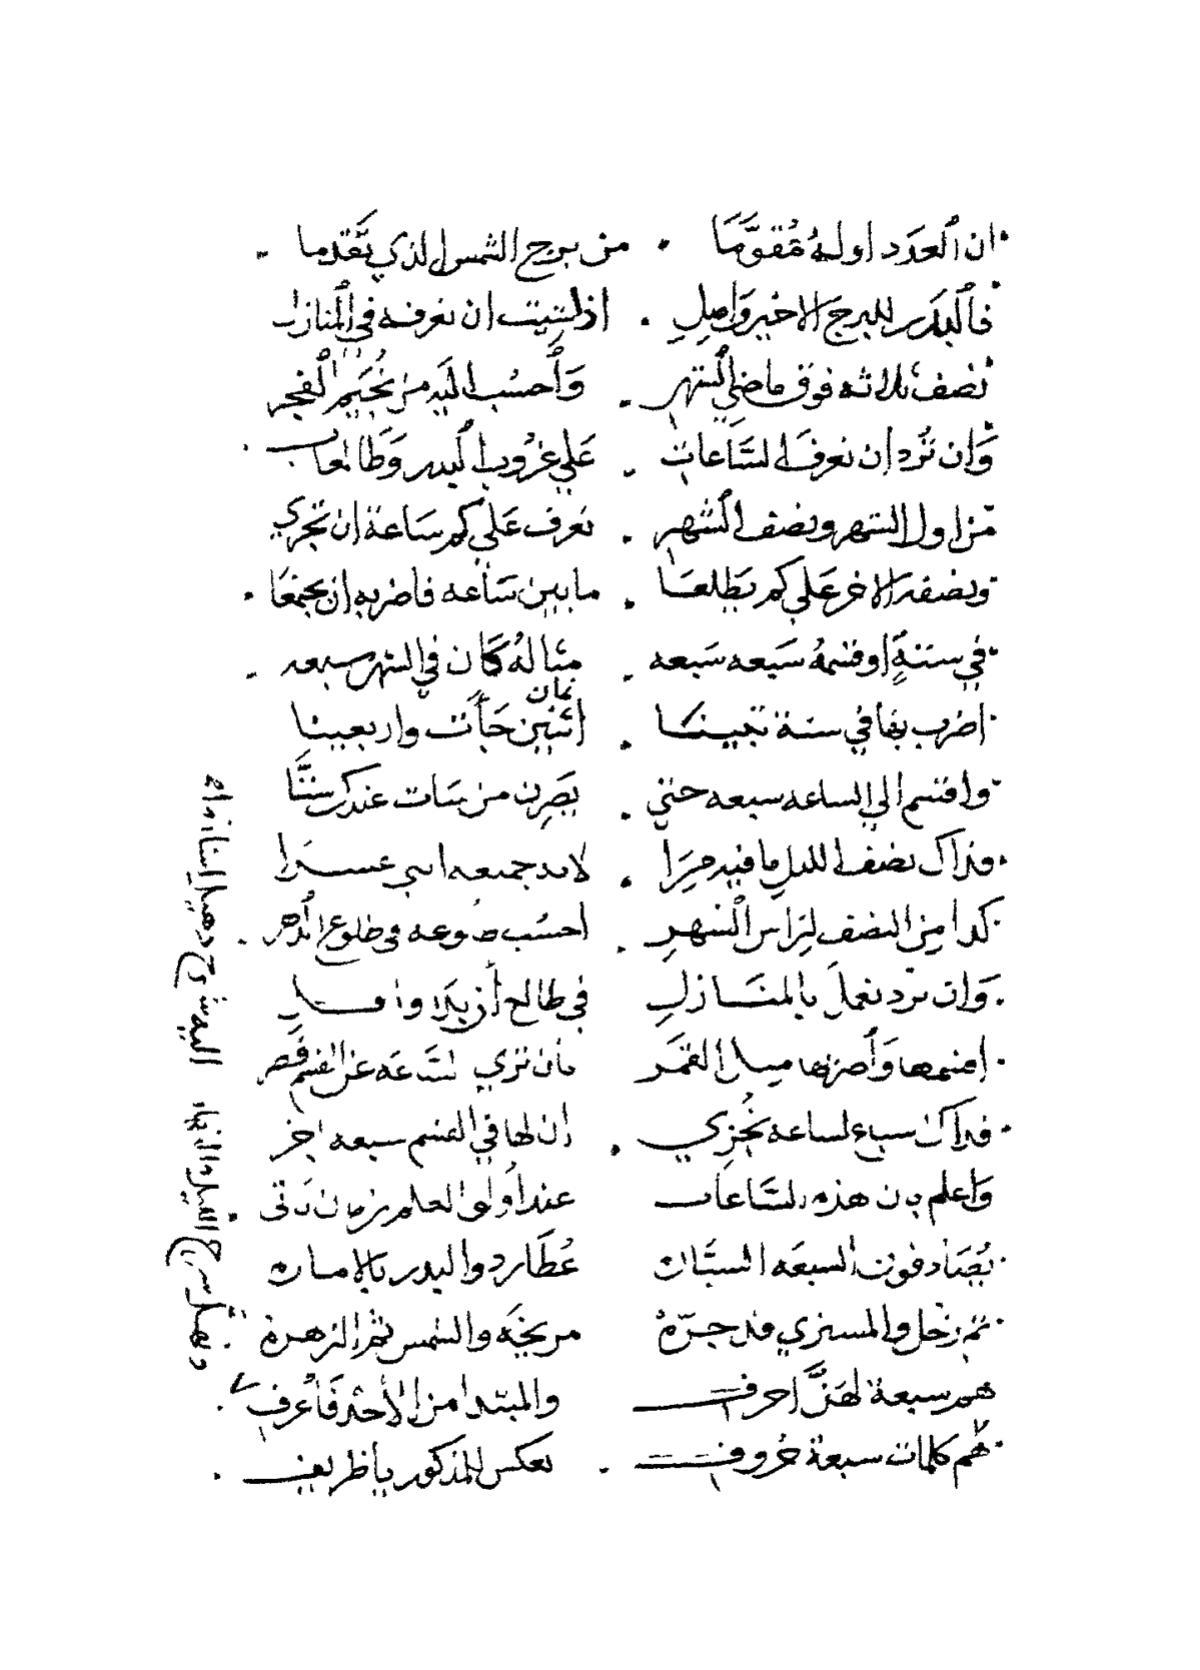 ان العدد اوله مُقوَّمَا . من برج الشمس الذي تقدما
فالبدر للبرج الاخير وَاصِلِ . اذ شيت ان تعرفه في المنازل
نصف ثلاثه فوق ماضي الشهر . وَأحسُب اليه من نُجَيم الفجر
وَان تُرد ان تعرف الساعات . عَلي غرُوب البدر وَطالعات
من اول الشهر ونصف الشهر . تعرف عَلي كم سَاعة ان تجري
ونصفه الاخر عَلي كم يَطلعَا . ما بين سَاعه فاضربه ان يجمعَا
في ستةٍ اوقسمهُ سَبعه سَبعه . مثالهُ كان في الشهر سبعه
ثمان
اضرب بها في ستة تبيينا . اثنين جَأت واربعينا
واقسم الي الساعه سبعه حتي . يَصِرن من سَات عندك ستَّا
وذاك نصف الليل ما فيه مِرَا . لابد جميعه اثني عشرا
كدا مِن النصف لِرَاس الشهرِ . احسُب طلوعه في طلوع
وَان ترد تعمل بالمنَازلِ في طالع
اقسمها وَأضربها ميل القمَر فان تري سَاعَه عن القسم قصر
فذاك اسباع لساعه تُجزي . ان لها في القسم سبعه اجز
وَاعلم بان هذه السَّاعات عند أولي العلم
يُصَادفون السبعَه السيَّات عُطَارد والبدر
ثم زحل والمشتري قد جرّهْ مريخَه والشمس ثم الزهرة
هم سبعة لهَنَّ احرف والمبتدا من الأحَد فَأعْرف
هُم كلمات سبعة حُروف . بعكس المذكور يا ظريف